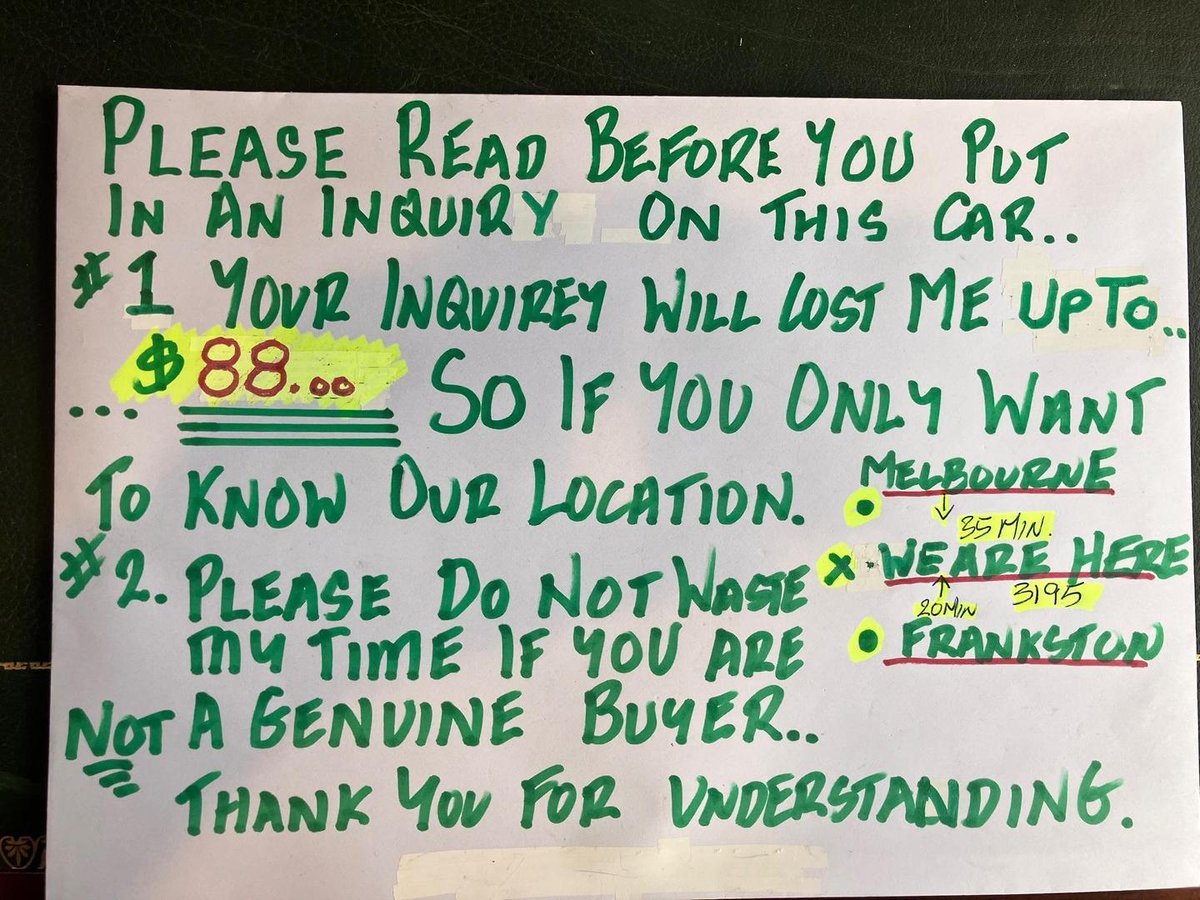 PLEASE READ BEFORE YOU PUT
IN AN INQUIRY ON THIS CAR..
#1 YOUR INQUIREY WILL COST ME UP TO..
... $88.00 SO IF YOU ONLY WANT
TO KNOW OUR LOCATION.
MELBOURNE
↓ 35 MIN.
x - WE ARE HERE
↑ 20 MIN 3195
FRANKSTON
#2. PLEASE DO NOT WASTE
MY TIME IF YOU ARE
NOT A GENUINE BUYER..
THANK YOU FOR UNDERSTANDING.